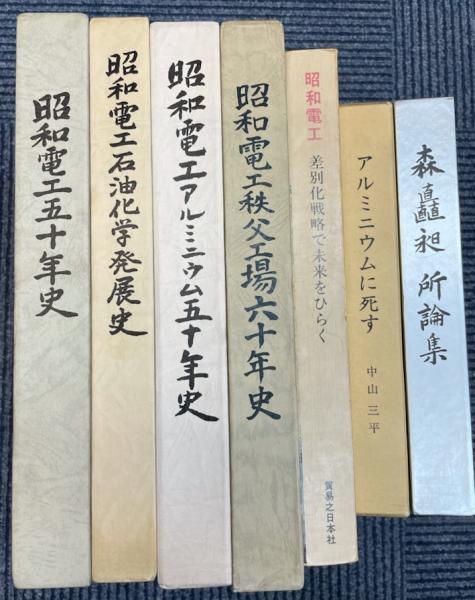 昭和電工五十年史
昭和電工石油化学発展史
昭和電工アルミニウム五十年史
昭和電工秩父工場六十年史
昭和電工
差別化戦略で未来をひらく
貿易之日本社
アルミニウムに死す
中山三平
森矗昶所論集